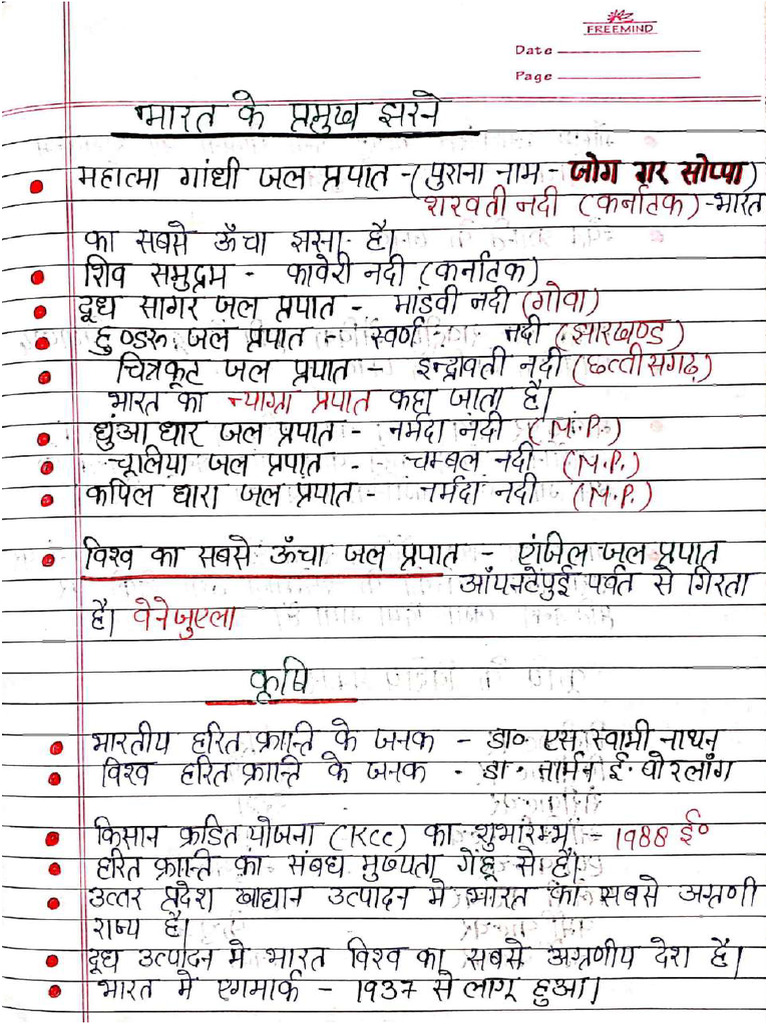 FREEMIND
Date
Page
भारत के प्रमुख झरने
महात्मा गांधी जल प्रपात -(पुराना नाम - जोग गर सोप्पा)
शरवती नदी (कर्नाटक)-भारत
का सबसे ऊँचा झरना है।
शिव समुद्रम - कावेरी नदी (कर्नाटक)
दूध सागर जल प्रपात - मांडवी नदी (गोवा)
हुण्डरू जल प्रपात - स्वर्ण नदी (झारखण्ड)
चित्रकूट जल प्रपात - इन्द्रावती नदी (छत्तीसगढ़)
भारत का न्याग्रा प्रपात कहा जाता है।
धुंआ धार जल प्रपात - नर्मदा नदी (M.P.)
चूलिया जल प्रपात - चम्बल नदी (M.P.)
कपिल धारा जल प्रपात - नर्मदा नदी (M.P.)
विश्व का सबसे ऊँचा जल प्रपात - एंजिल जल प्रपात
ऑपनटेपुई पर्वत से गिरता
है। वेनेजुएला
कृषि
भारतीय हरित क्रान्ति के जनक - डा० एस स्वामी नाथन
विश्व हरित क्रान्ति के जनक - डा. नार्मन ई. बोरलॉग
किसान क्रडित योजना (KCC) का शुभारम्भ - 1988 ई०
हरित क्रान्ति का संबध मुख्यता गेहू से है।
उत्तर प्रदेश खाद्यान उत्पादन मे भारत का सबसे अग्रणी
राज्य है।
दूध उत्पादन मे भारत विश्व का सबसे अग्रणीय देश है।
भारत में एगमार्क - 1937 से लागू हुआ।